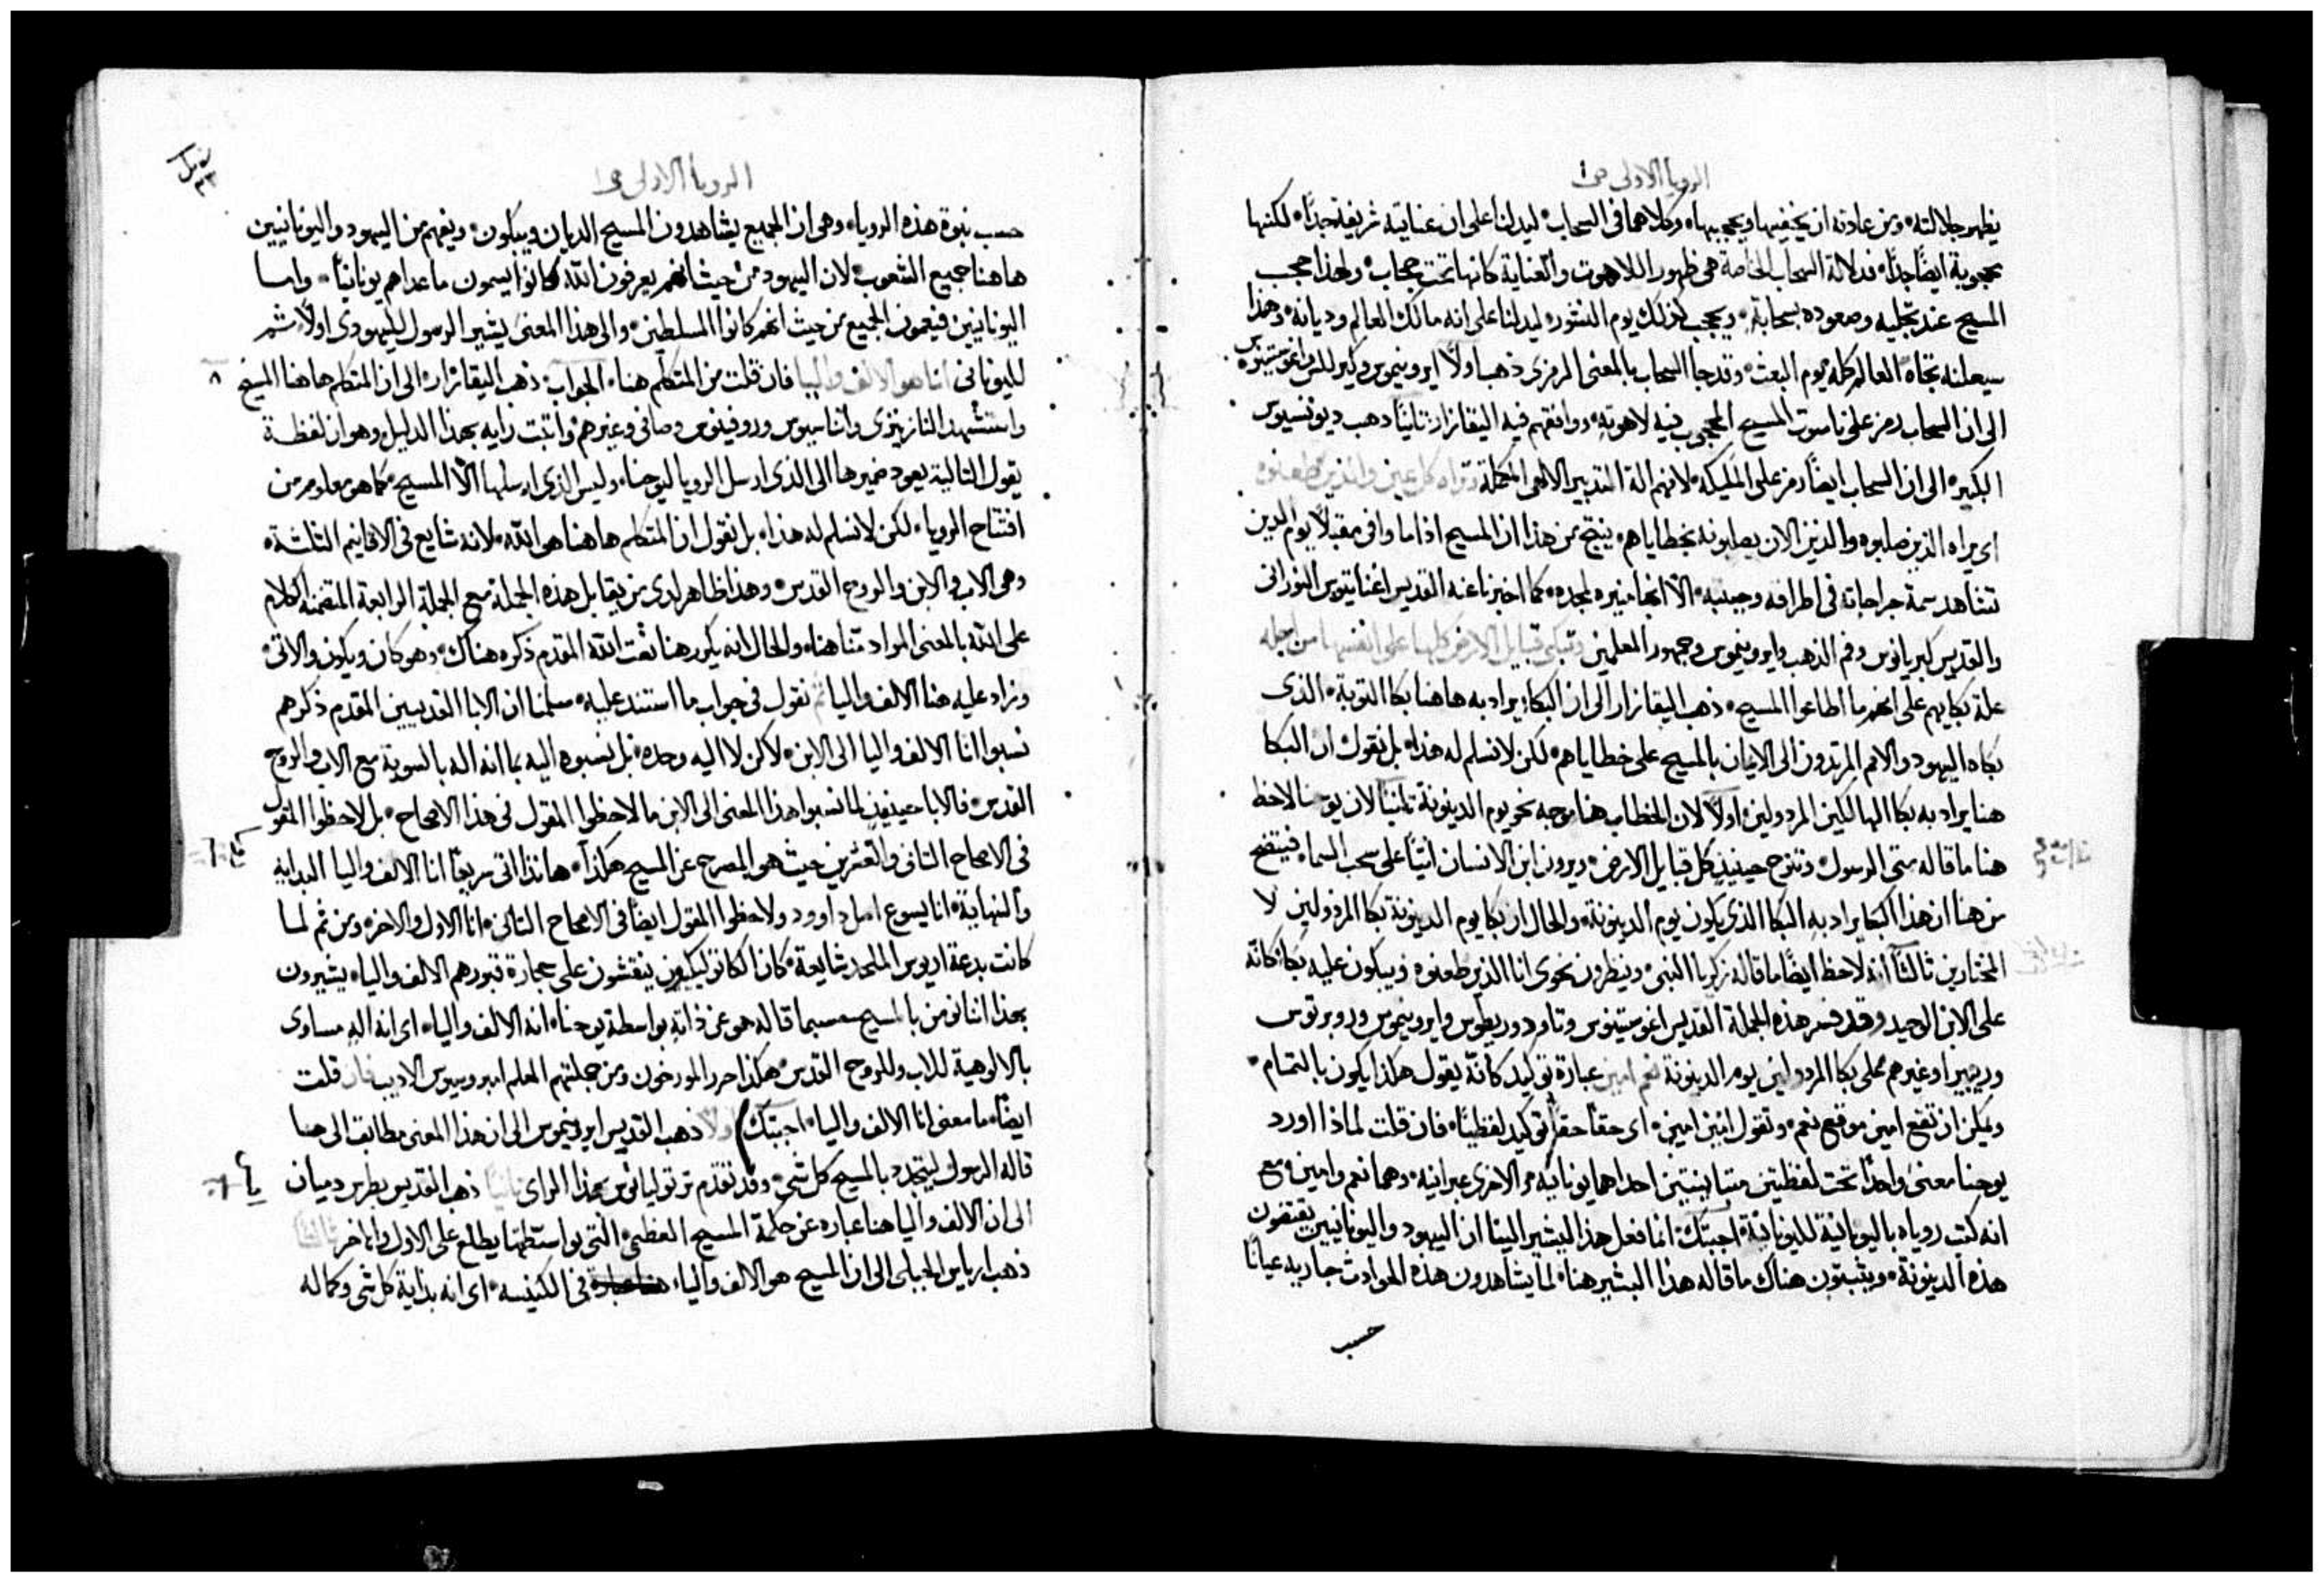 الرويا الاولى ص١
يظهر جلالته ومن عادته ان يخفيها ويحجبها وكلاهما فى السحاب ليدلنا على ان عنايته شريفة جدًا لكنها
محجوبة ايضًا جدًا فدلالة السحاب الخاصة هى ظهور اللاهوت والعناية كانها تحت حجاب ولهذا حجب
المسيح عند تجليه وصعوده بسحابة ويحجب كذلك يوم النشور ليدلنا على انه مالك العالم وديانه وهذا
سيعلنه تجاه العالم كله يوم البعث وقد جا السحاب بالمعنى الرمزى ذهب اولًا ايرونيموس وكيرللس واغوستينوس
الى ان السحاب رمز على ناسوت المسيح المحجوب فيه لاهوته ووافقهم فيه اليقازار ثانيًا ذهب ديونسيوس
الكبير الى ان السحاب ايضًا رمز على المليكه لانهم الة التدبير الالهى المكملة وتراه كل عين والذين طعنوه
اى يراه الذين صلبوه والذين الان يصلبونه بخطاياهم ينتج من هذا ان المسيح اذا ما وافى مقبلًا يوم الدين
تشاهد سمة جراحاته فى اطرافه وجبنبه الا انها منيره لمجده كما اخبرنا عنه القديس اغناتيوس النورانى
والقديس كبريانوس وفم الذهب وايرونيموس وجمهور المعلمين وتبكى قبايل الارض كلها على انفسها من اجله
علة بكايهم على انهم ما اطاعوا المسيح ذهب اليقازار الى ان البكا يراد به هاهنا بكا التوبة الذى
بكاه اليهود والامم المرتدون الى الايمان بالمسيح على خطاياهم لكن لا نسلم له هذا بل نقول ان البكا
هنا يراد به بكا الهالكين المردولين اولًا لان الخطاب هنا موجه نحو يوم الدينونة ثانيًا لان يوحنا لاحظ
هنا ما قاله متى الرسول وتنوح حينيذ كل قبايل الارض ويرون ابن الانسان اتيًا على سحب السما فيتضح
من هنا ان هذا البكا يراد به البكا الذى يكون يوم الدينونة والحال ان بكا يوم الدينونة بكا المردولين لا
المختارين ثالثًا انه لاحظ ايضًا ما قاله زكريا النبى وينظرون نحوى انا الذين طعنوه ويبكون عليه بكا كانه
على الابن الوحيد وقد فسر هذه الجملة القديس اغوستينوس وتاودوريطوس وايرونيموس وروبرتوس
وريبيرا وغيرهم على بكا المردولين يوم الدينونة نعم امين عبارة توكيد كانه يقول هكذا يكون بالتمام
ويمكن ان تقع امين موقع نعم وتقول امين امين اى حقًا حقًا توكيد لفظيًا فان قلت لماذا اورد
يوحنا معنى واحدًا تحت لفظتين متباينتين احداهما يونانيه والاخرى عبرانيه وهما نعم وامين ومع
انه كتب روياه باليونانية لليونانية اجبتك انما فعل هذا البشير الينا ان اليهود واليونانيين يقتضون
هذه الدينونة ويثبتون هناك ما قاله هذا البشير هنا لما يشاهدون هذه الحوادث جاريه عيانًا
حسب
الرويا الاولى ص١
حسب نبوة هذه الرويا وهى ان الجميع يشاهدون المسيح الديان ويبكون ويفهم من اليهود واليونانيين
هاهنا جميع الشعوب لان اليهود من حيث انهم يعرفون الله كانوا يسمون ما عداهم يونانيًا واما
اليونانيين فيعمون الجميع من حيث انهم كانوا المسلطين والى هذا المعنى يشير الرسول لليهودى اولًا ثم
لليونانى انا هو الالف واليا فان قلت من المتكلم هنا الجواب ذهب اليقازار الى ان المتكلم هاهنا المسيح
واستشهد النازينزى واثناسيوس وروفينوس وصافى وغيرهم واثبت رايه بهذا الدليل وهو ان لفظة
يقول التالية يعود ضميرها الى الذى ارسل الرويا ليوحنا وليس الذى ارسلها الا المسيح كما هو معلوم من
افتتاح الرويا لكن لا نسلم له هذا بل نقول ان المتكلم هاهنا هو الله لانه شايع فى الاقانيم الثلثة
وهى الاب والابن والروح القدس وهذا ظاهر لدى من يقابل هذه الجملة مع الجملة الرابعة المتضمنة الكلام
على الله بالمعنى المراد متنا هنا والحال انه يكرر هنا نعت الله المقدم ذكره هناك وهو كان ويكون والاتى
وزاد عليه هنا الالف واليا ثم نقول فى جواب ما استند عليه سلمنا ان الابا القديسين المقدم ذكرهم
نسبوا انا الالف واليا الى الابن لاكن لا اليه وحده بل نسبوه اليه بما انه اله بالسوية مع الاب والروح
القدس فالابا حينيذ لما نسبوا هذا المعنى الى الابن ما لاحظوا المقول فى هذا الاصحاح بل لاحظوا المقول
فى الاصحاح الثانى والعشرين حيث هو المصرح عن المسيح هكذا هانذا اتى سريعًا انا الالف واليا البداية
والنهاية انا يسوع اصل داوود ولاحظوا المقول ايضًا فى الاصحاح الثانى انا الاول والاخر ومن ثم لما
كانت بدعة اريوس الملحد شايعة كان الكاثوليكيون ينقشون على حجارة قبورهم الالف واليا يشيرون
بهذا اننا نومن بالمسيح حسبما قاله هو عن ذاته بواسطة يوحنا انه الالف واليا اى انه اله مساوى
بالالوهية للاب وللروح القدس هكذا حرر المورخون ومن جملتهم المعلم امبروسيوس الاديب فان قلت
ايضًا ما معنى انا الالف واليا اجبتك اولًا ذهب القديس ايرونيموس الى ان هذا المعنى مطابق الى ما
قاله الرسول ليتجدد بالمسيح كل شى وقد تقدم ترتوليانوس بهذا الراى ثانيًا ذهب القديس بطرس دميان
الى ان الالف واليا هنا عباره عن حكمة المسيح العظمى التى بواسطتها يطلع على الاول والاخر ثالثًا
ذهب ارياس الجبلى الى ان المسيح هو الالف واليا فى الكنيسه اى انه بداية كل شى وكماله